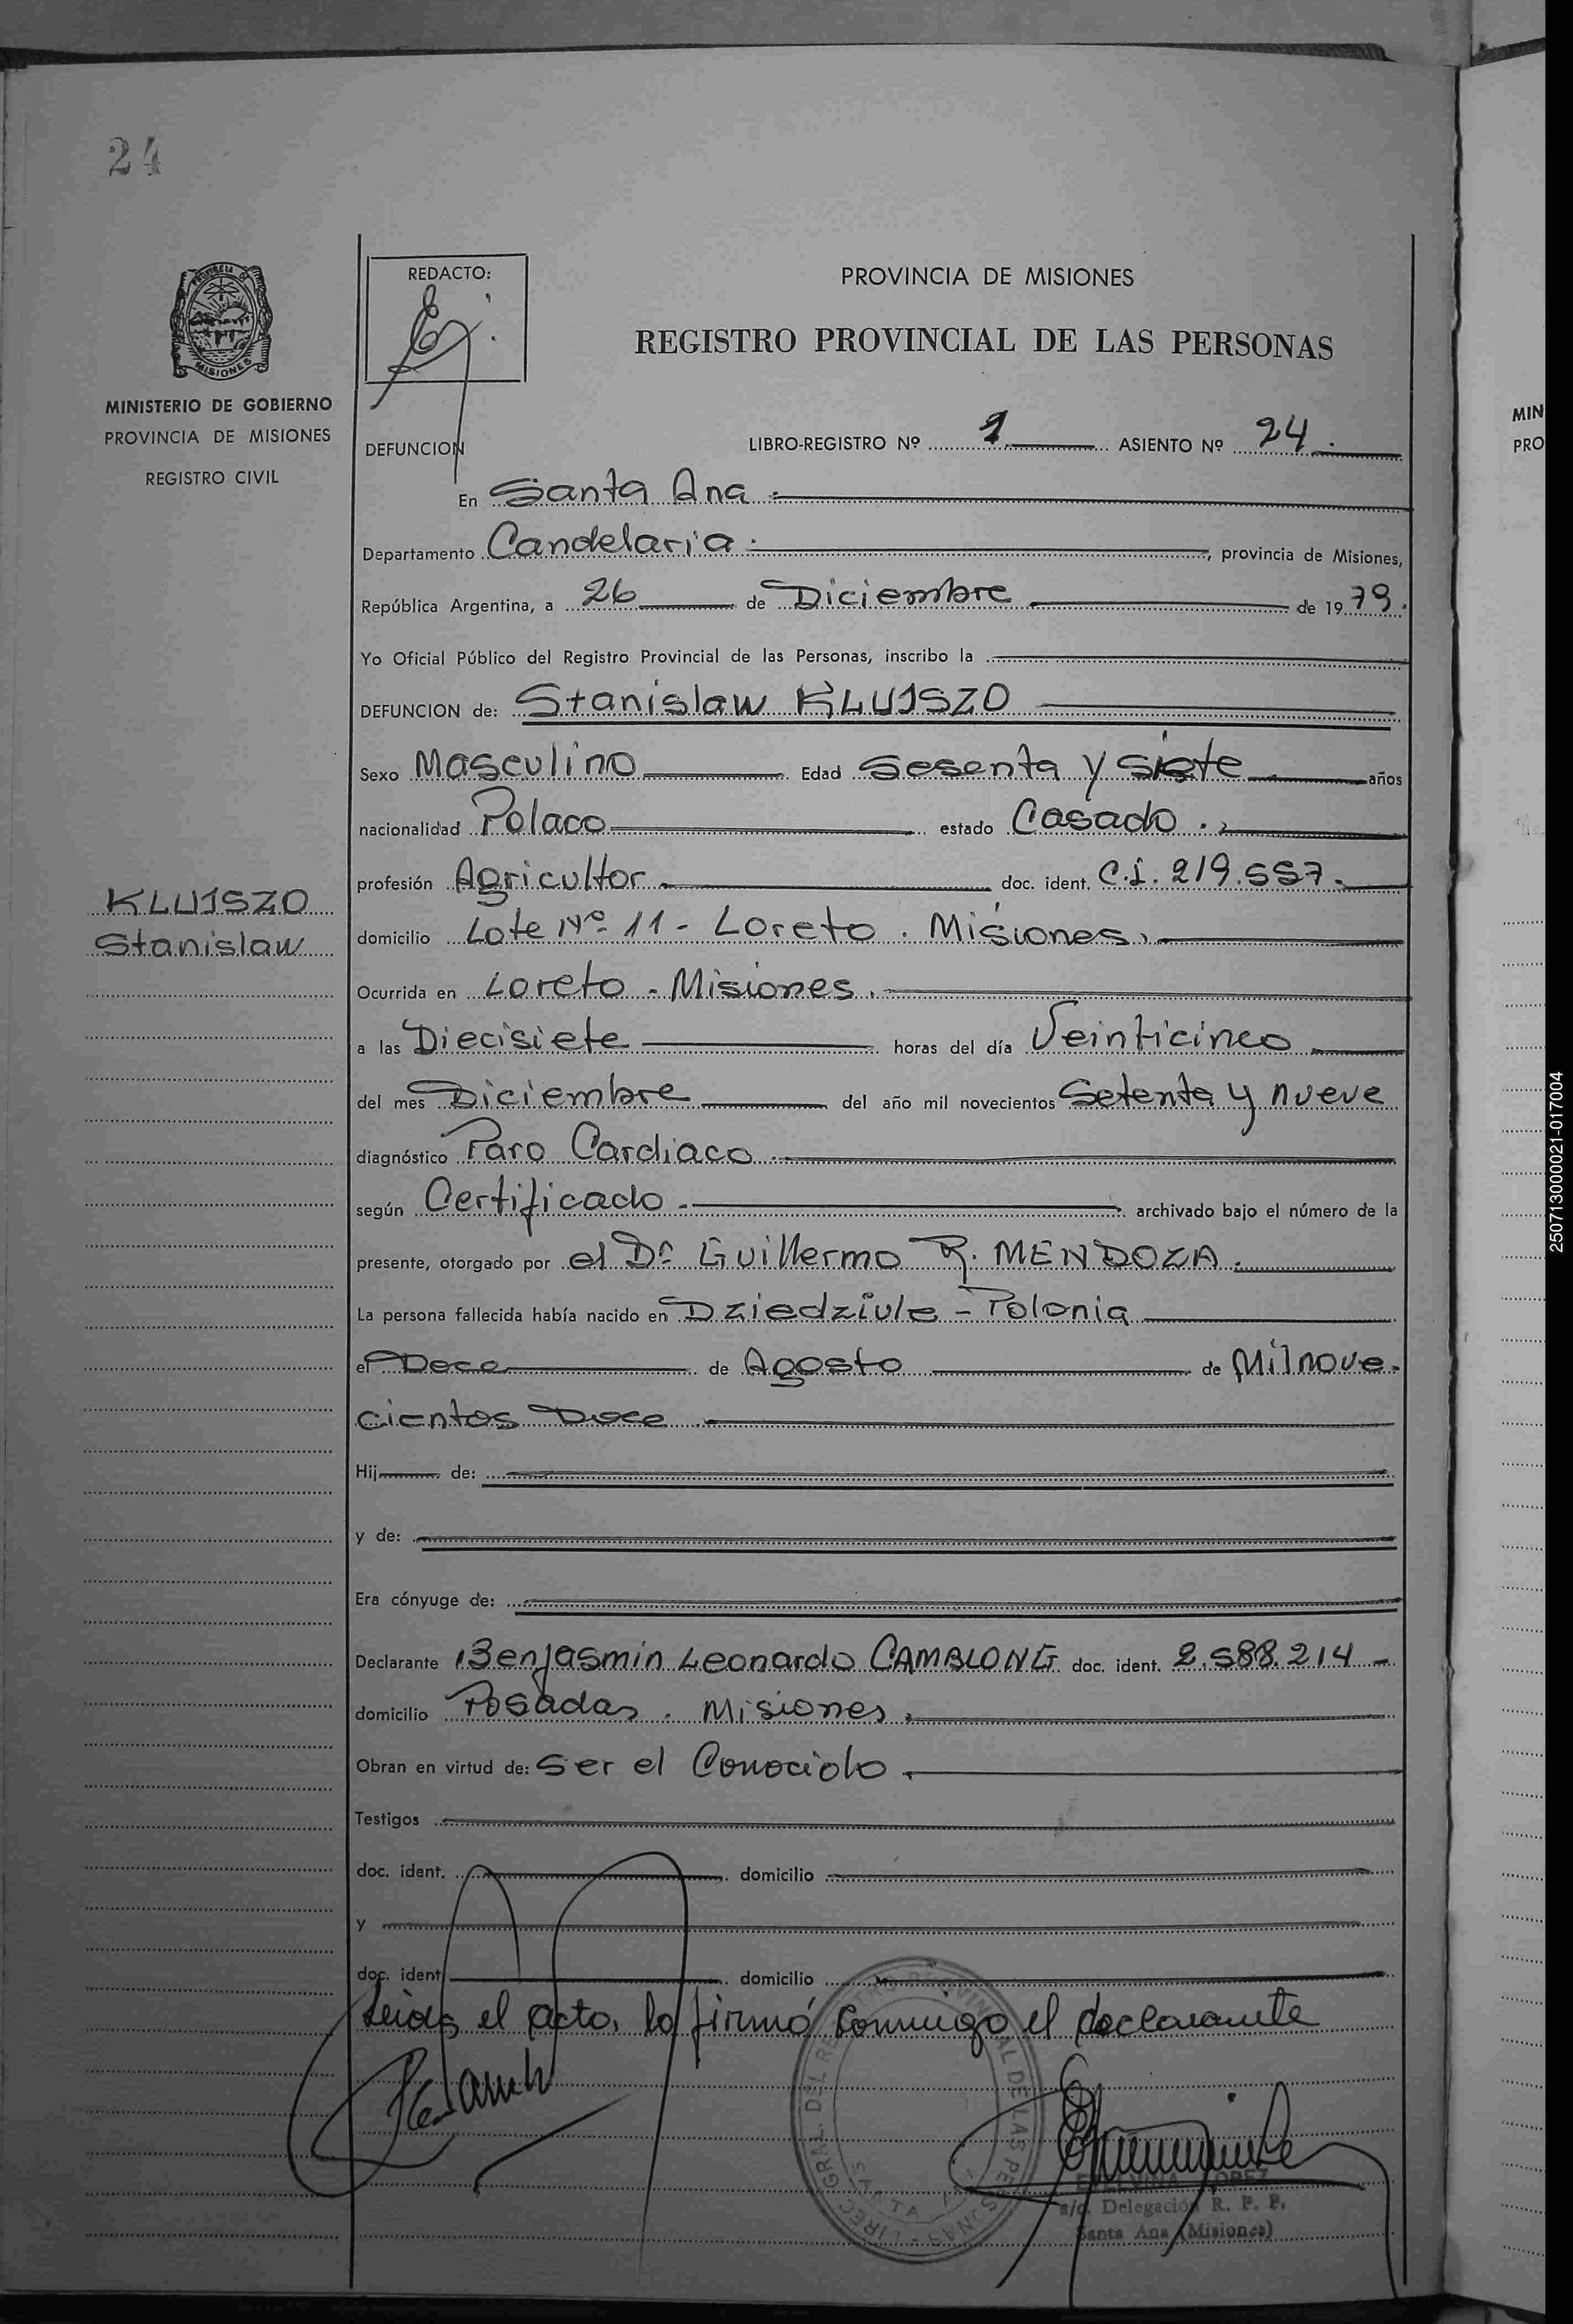 24
PROVINCIA DE MISIONES
MINISTERIO DE GOBIERNO
PROVINCIA DE MISIONES
REGISTRO CIVIL
REDACTO:
PROVINCIA DE MISIONES
REGISTRO PROVINCIAL DE LAS PERSONAS
DEFUNCION LIBRO-REGISTRO Nº 1 ASIENTO Nº 24.
En Santa Ana.
Departamento Candelaria. , provincia de Misiones,
República Argentina, a 26 de Diciembre de 1979.
Yo Oficial Público del Registro Provincial de las Personas, inscribo la
DEFUNCION de: Stanislaw KLUJSZO
Sexo Masculino Edad Sesenta y Siete años
nacionalidad Polaco estado Casado.
profesión Agricultor doc. ident. C.I. 219.557.
KLUJSZO
Stanislaw
domicilio Lote Nº 11 - Loreto. Misiones.
Ocurrida en Loreto - Misiones.
a las Diecisiete horas del día Veinticinco
del mes Diciembre del año mil novecientos Setenta y nueve
diagnóstico Paro Cardiaco
según Certificado. archivado bajo el número de la
presente, otorgado por el Dr Guillermo R. MENDOZA.
La persona fallecida había nacido en Dziedziule - Polonia
el Doce de Agosto de Milnove-
cientos Doce
Hij de:
y de:
Era cónyuge de:
Declarante Benjasmin Leonardo CAMBLONG doc. ident. 2.588.214 -
domicilio Posadas. Misiones.
Obran en virtud de: Ser el Conocido.
Testigos
doc. ident. domicilio
y
doc. ident domicilio
Leida el acto, la firmó conmigo el declarante
LOPEZ
a/c. Delegación R. P. P.
Santa Ana (Misiones)
MIN
PRO
250713000021-017004